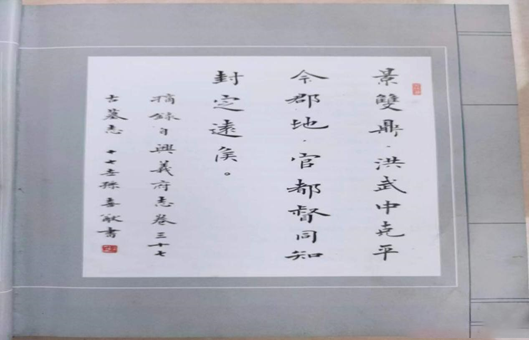 景雙鼎·洪武中克平
今郡地·官都督同知
封定遠侯。
摘錄自興義府志卷三十七
古墓志 十七世孫